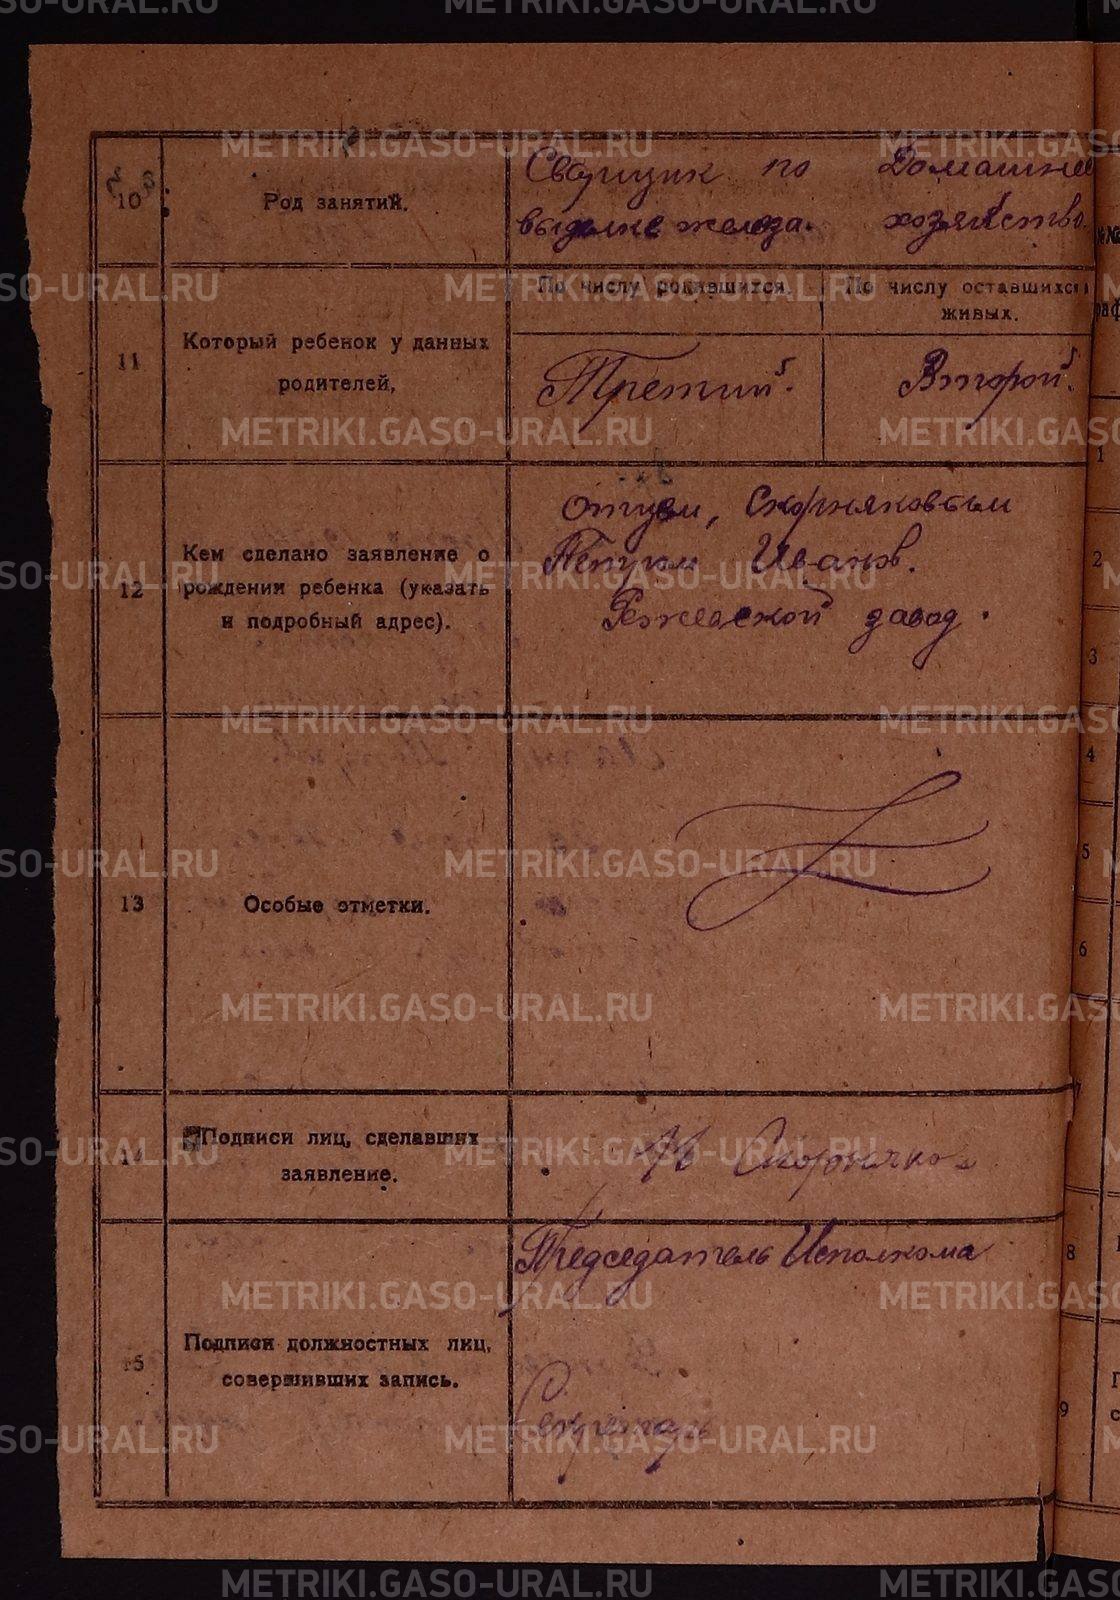 METRIKI.GASO-URAL.RU
10
Род занятий.
Сварщик по
выделке железа.
Домашнее
хозяйство.
11
Который ребенок у данных
родителей,
По числу родившихся.
По числу оставшихся
живых.
Третий.
Второй.
12
Кем сделано заявление о
рождении ребенка (указать
и подробный адрес).
Отцем, Скорняковым
Петром Иванов.
Режевской завод.
13
Особые отметки.
14
Подписи лиц, сделавших
заявление.
Скорняков
15
Подписи должностных лиц,
совершивших запись.
Председатель Исполкома
Секретарь
№№
1
2
3
4
5
6
7
8
9